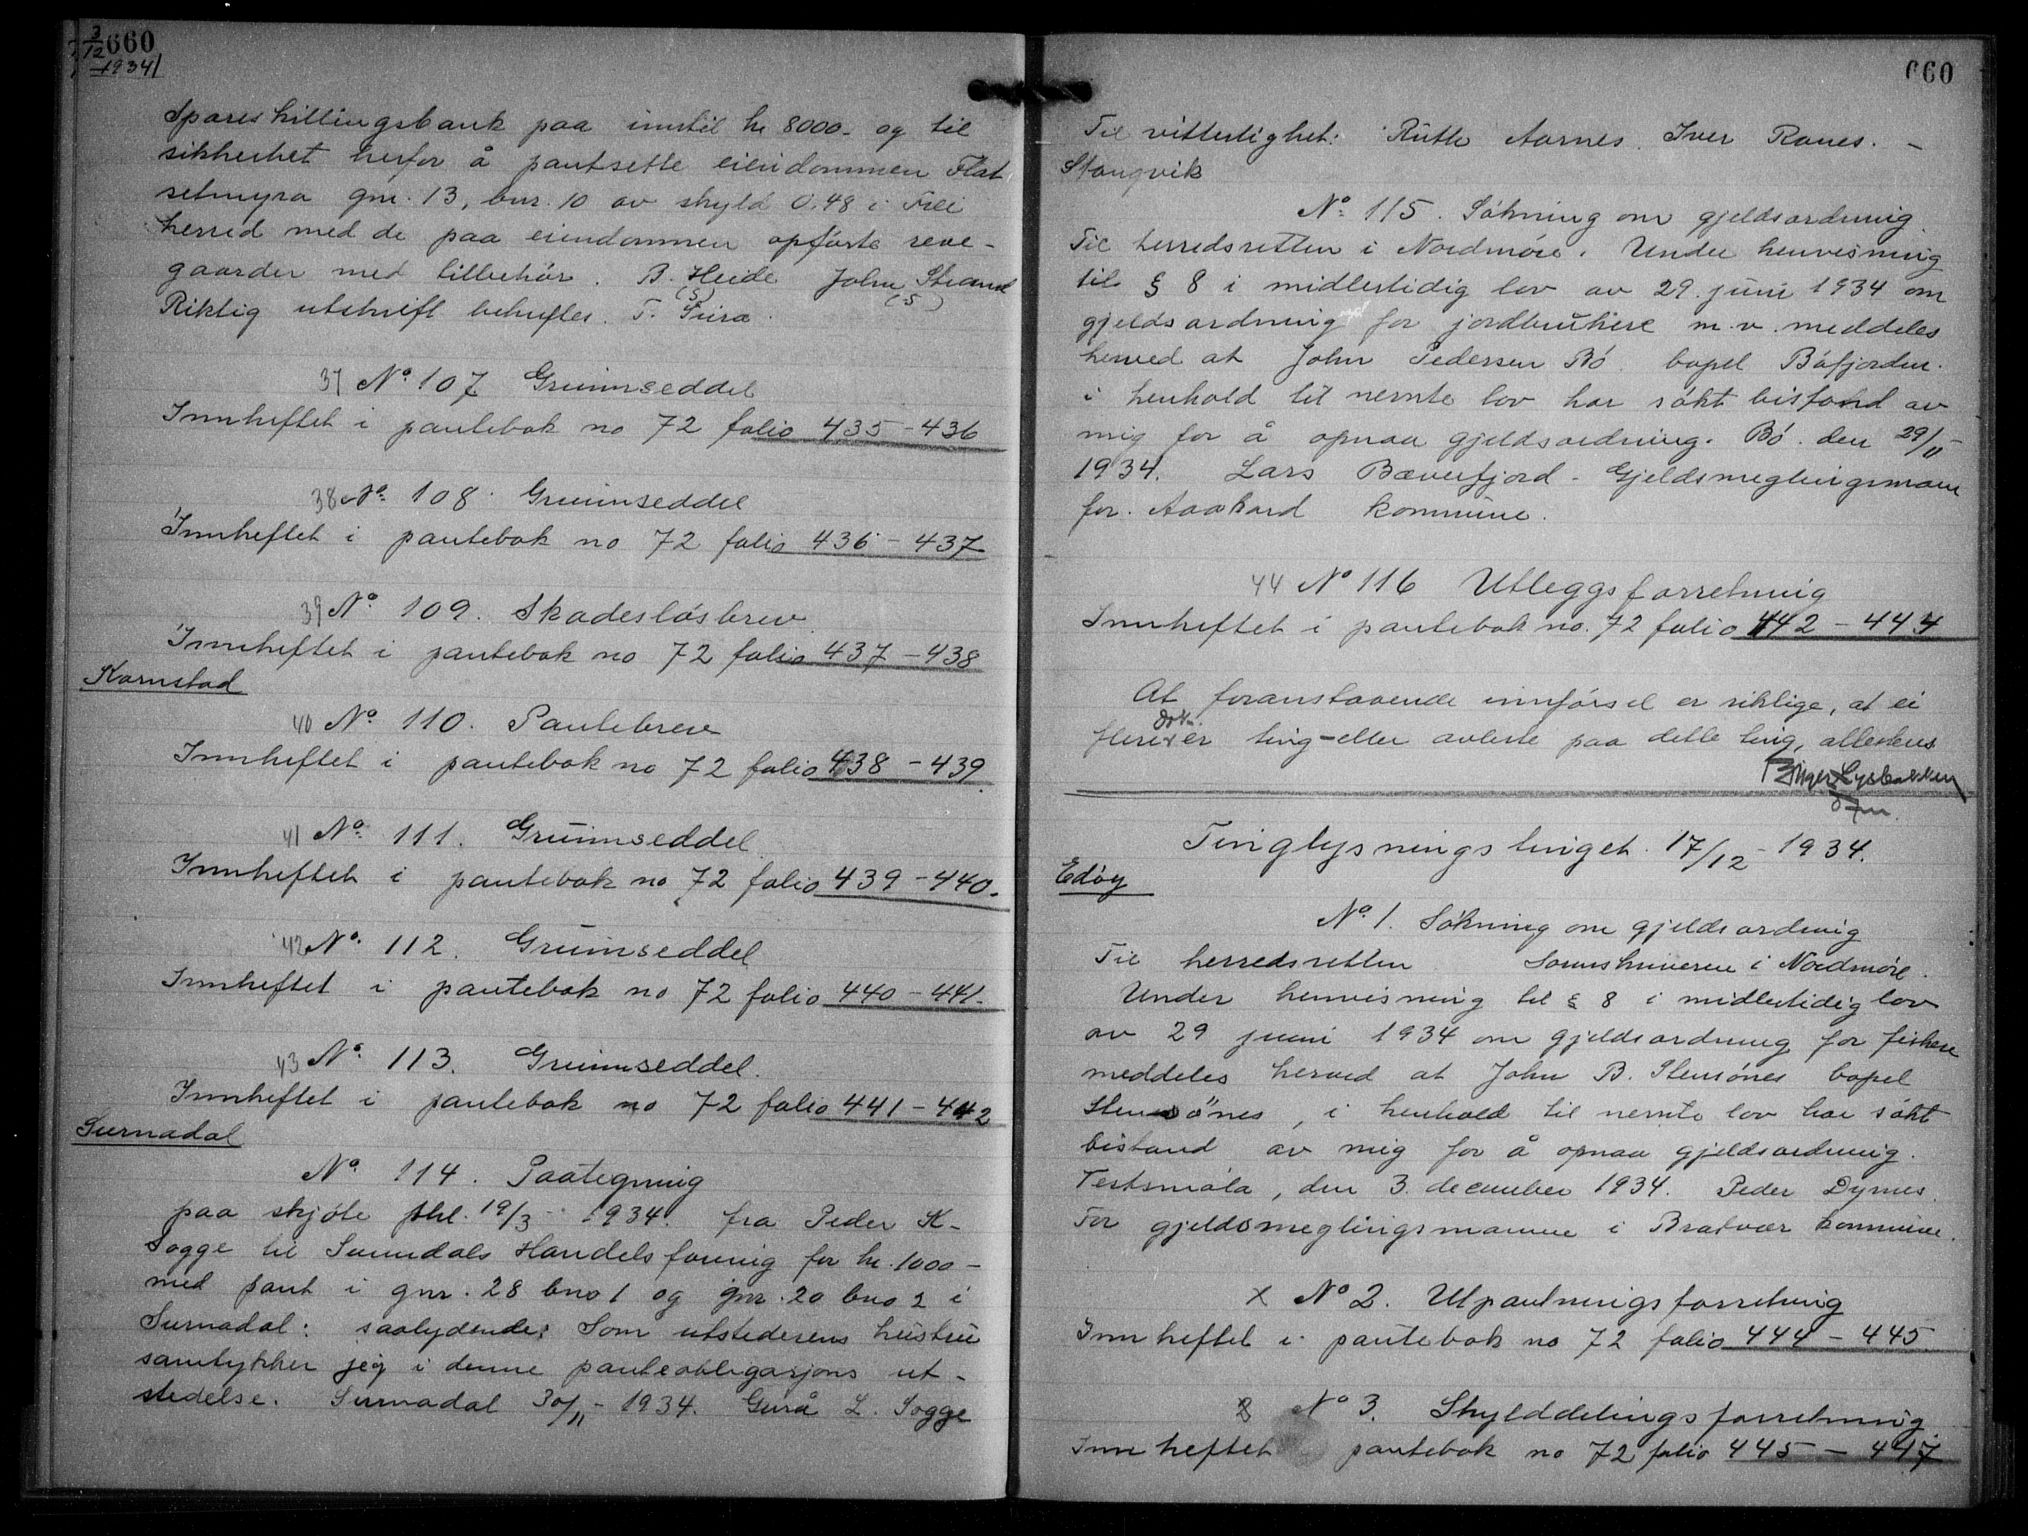 3/12 660
1934
Spareskillingsbank paa inntil kr 8000- og til
sikkerhet herfor å pantsette eiendommen Flat
setmyra gnr. 13, bnr. 10 av skyld 0.48 i Frei
herred med de paa eiendommen opførte reve-
gaarder med tilbehør. B. Heide John Strand
(S) (S)
Riktig utskrift bekreftes. T. Sûra.
37 No. 107 Grunnseddel
Innheftet i pantebok no 72 folio 435-436
38 No. 108 Grunnseddel
Innheftet i pantebok no 72 folio 436-437
39 No. 109. Skadesløsbrev
Innheftet i pantebok no 72 folio 437-438
Kornstad
40 No. 110. Pantebrev
Innheftet i pantebok no 72 folio 438-439
41 No. 111. Grunnseddel
Innheftet i pantebok no 72 folio 439-440.
42 No. 112. Grunnseddel
Innheftet i pantebok no 72 folio 440-441.
43 No. 113. Grunnseddel.
Innheftet i pantebok no 72 folio 441-442
Surnadal
No. 114. Paategning
paa skjøte thl. 19/3 - 1934. fra Peder K-
Sogge til Sunndals Handelsforenig for kr. 1000-
med pant i gnr. 28 bno 1 og gnr. 20 bno 2 i
Surnadal: saalydende: Som utstederens hustru
samtykker jeg i denne panteobligasjons ut-
stedelse. Surnadal 30/11 - 1934. Gurå L. Sogge
660
Til vitterlighet: Ruth Aarnes. Iver Ranes. -
Stangvik
No. 115. Søkning om gjeldsordning.
Til herredsretten i Nordmøre. Under henvisning
til § 8 i midlertidig lov av 29. juni 1934 om
gjeldsordning for jordbrukere m.v. meddeles
herved at John Pedersen Bø bopel Bøfjorden.
i henhold til nevnte lov har søkt bistand av
mig for å opnaa gjeldsordning. Bø. den 29/11-
1934. Lars Bæverfjord - Gjeldsmeglingsmann
for Aasskard kommune.
44 No 116 Utleggsforretning
Innheftet i pantebok no. 72 folio 442-444
At foranstaaende innførsel er riktige, at ei
dok.
flere er ting- eller avleste paa dette ting, attesteres
Birger Lysbakken
Tinglysningstinget. 17/12 - 1934.
Edøy
No. 1. Søkning om gjeldsordning
Til herredsretten Sorenskriveren i Nordmøre.
Under henvisning til § 8 i midlertidig lov
av 29 juni 1934 om gjeldsordning for fiskere
meddeles herved at John B. Stensønes bopel
Stensønes, i henhold til nevnte lov har søkt
bistand av mig for å opnaa gjeldsordning.
Veidsmøla, den 3. december 1934. Peder Dyrnes.
For gjeldsmeglingsmannen i Bratvær kommune.
x No 2. Utpantningsforretning
Innheftet i pantebok no 72 folio 444-445
No 3. Skylddelingsforretning.
Innheftet pantebok no 72 folio 445-447